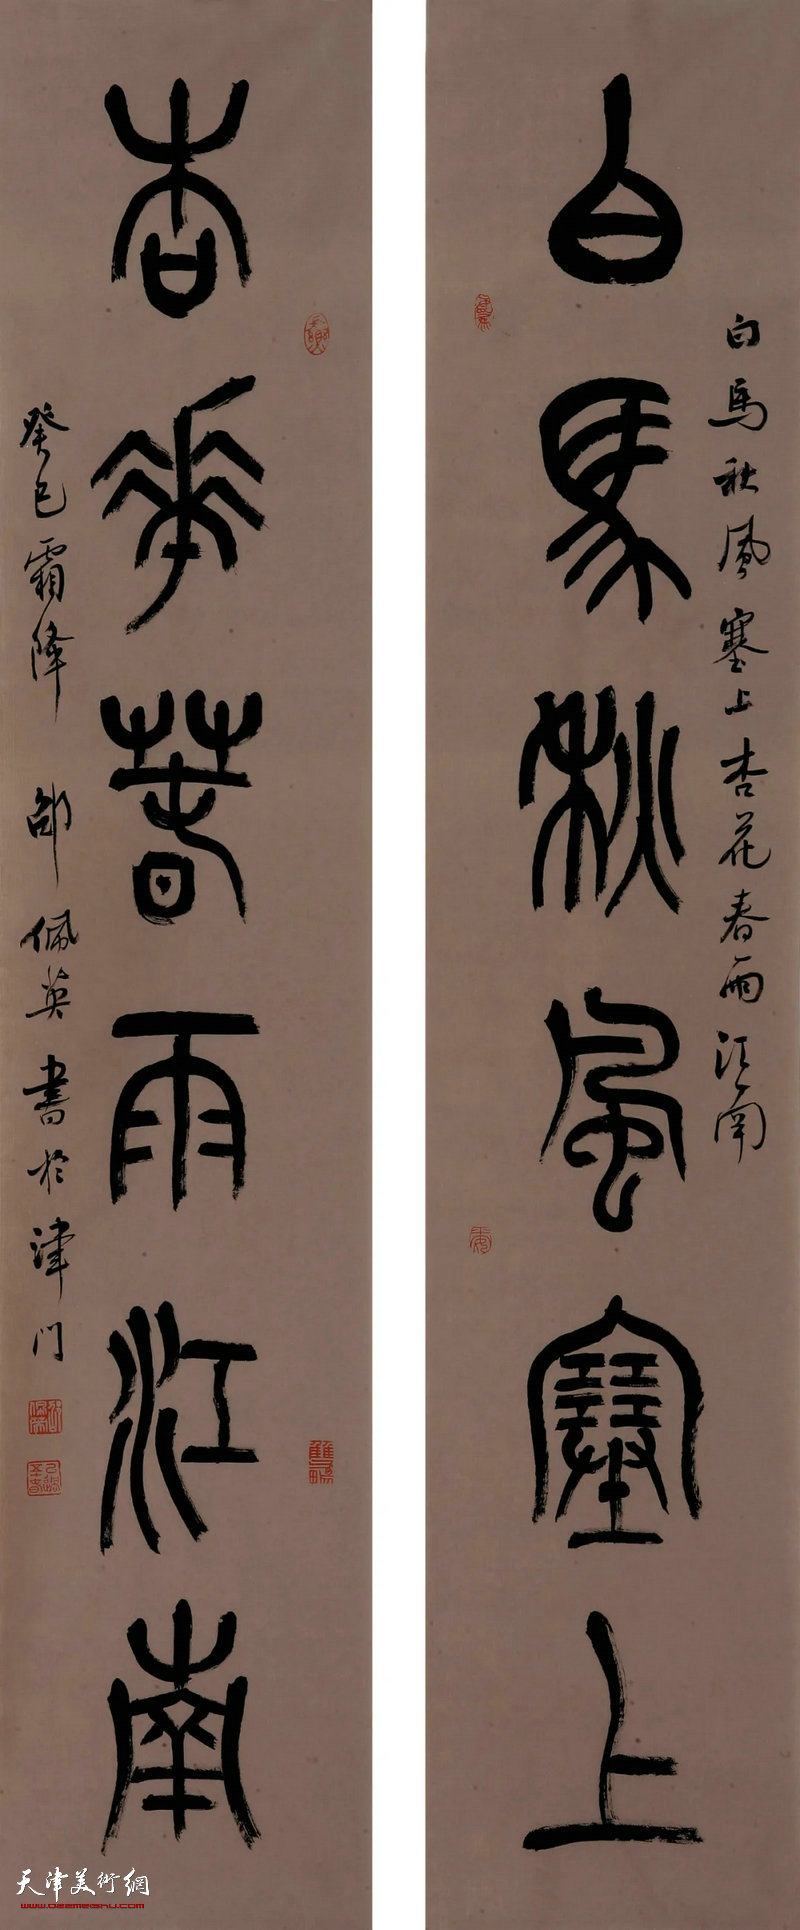 白馬秋風塞上
白馬秋風塞上杏花春雨江南
杏華春雨江南
癸巳霜降 邵佩英書於津門
天津美術網